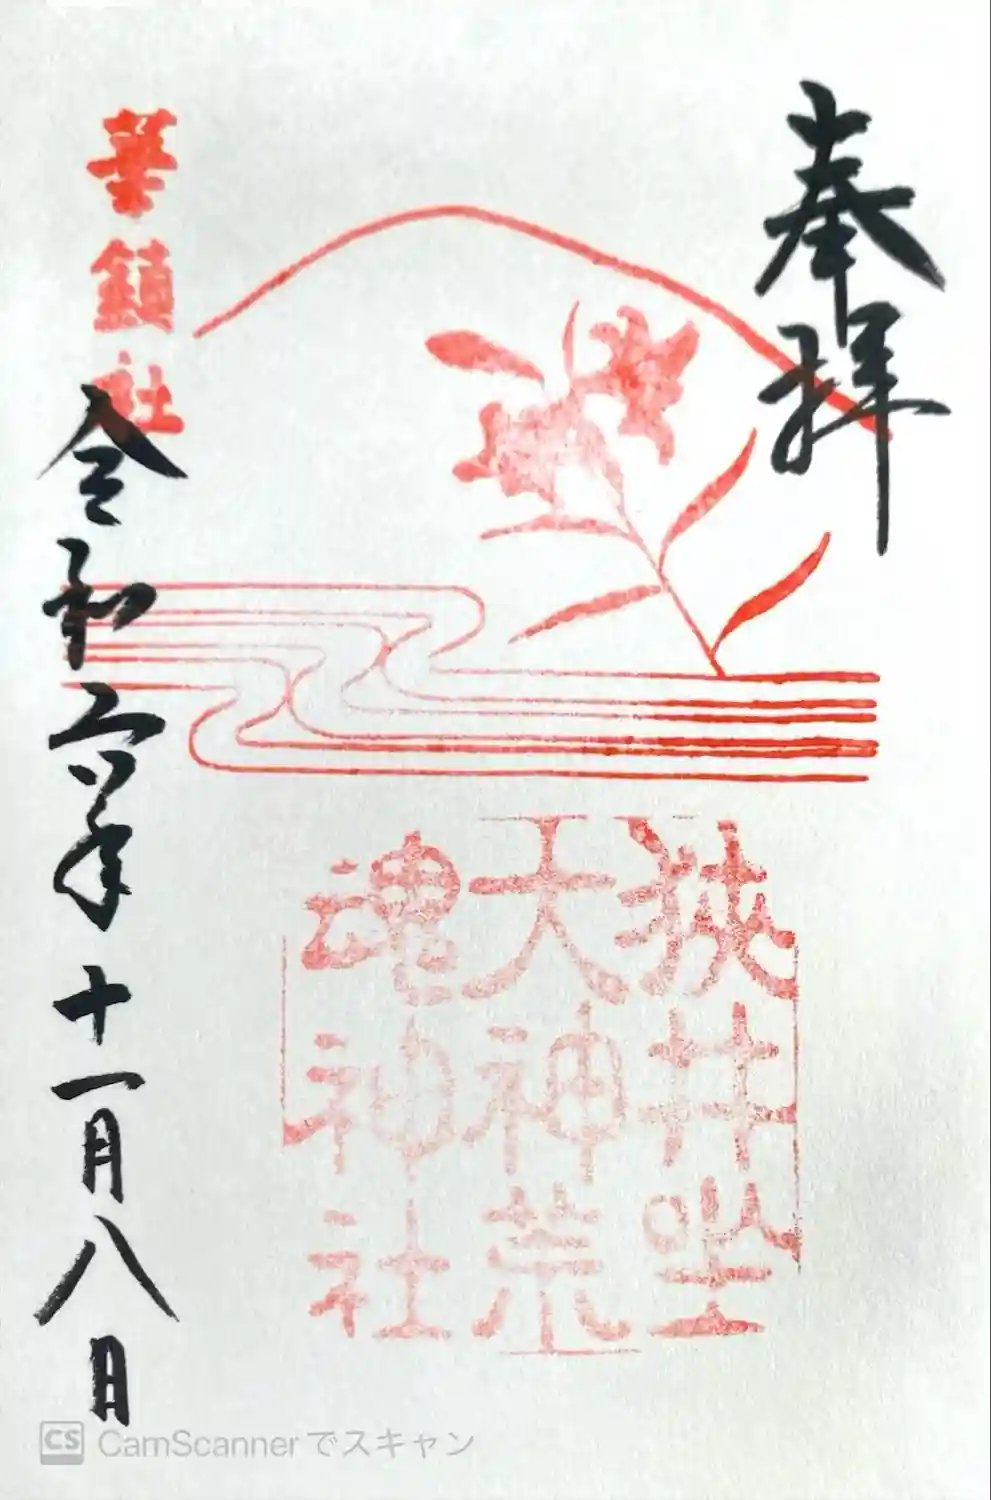 奉拝
狭井坐
大神荒
魂神社
華鎮社
令和六年十一月八日
CS CamScannerでスキャン